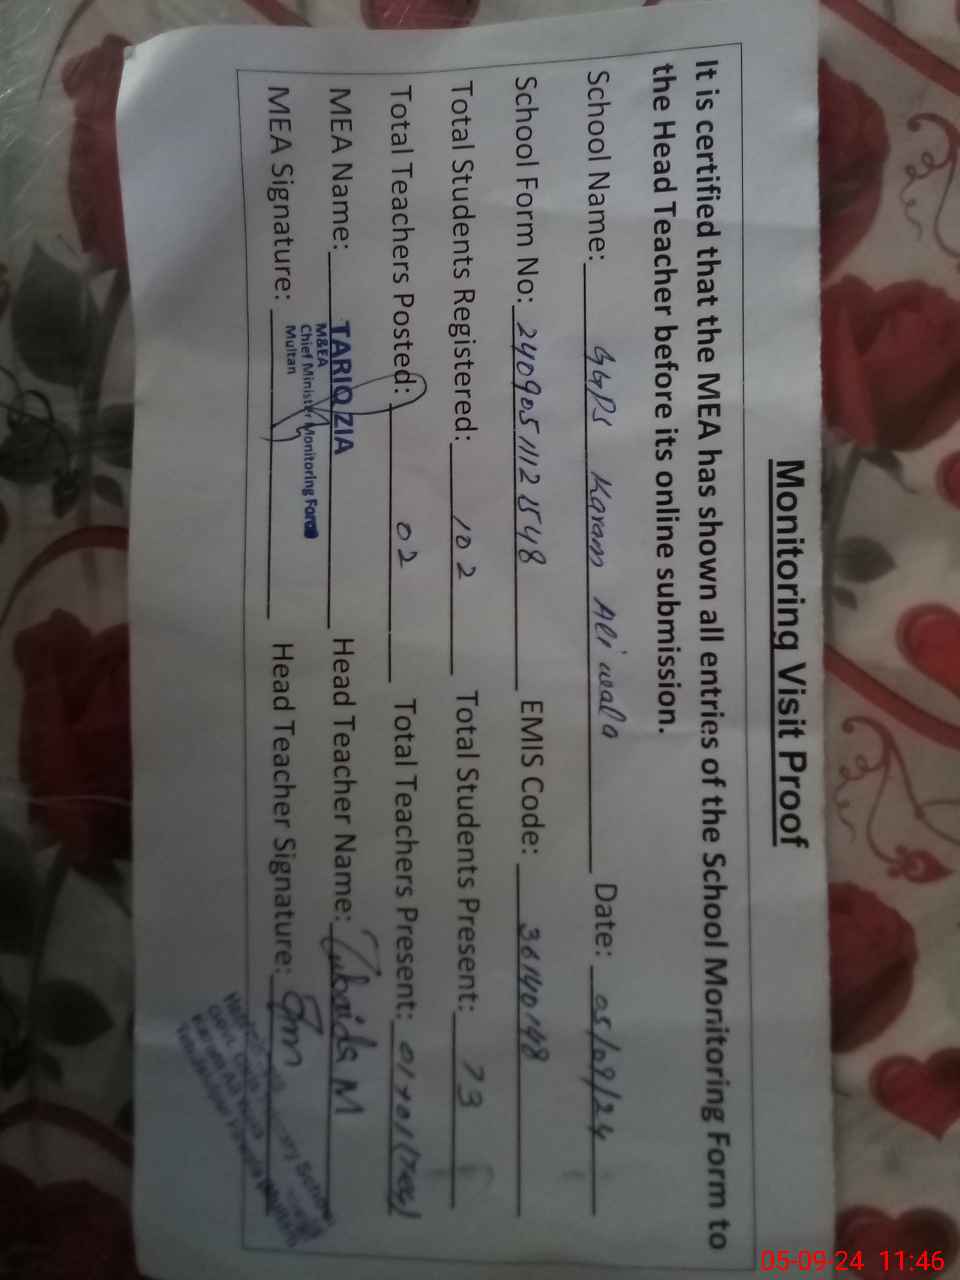 Monitoring Visit Proof
It is certified that the MEA has shown all entries of the School Monitoring Form to
the Head Teacher before its online submission.
School Name: GGPS Karam Ali wala Date: 05/09/24
School Form No: 240905 1112 1548 EMIS Code: 36140148
Total Students Registered: 102 Total Students Present: 73
Total Teachers Posted: 02 Total Teachers Present: 01+01
MEA Name: TARIQ ZIA Head Teacher Name: Zubaida M
M&EA
Chief Minister Monitoring Force
Multan
MEA Signature: Head Teacher Signature:
05-09-24 11:46